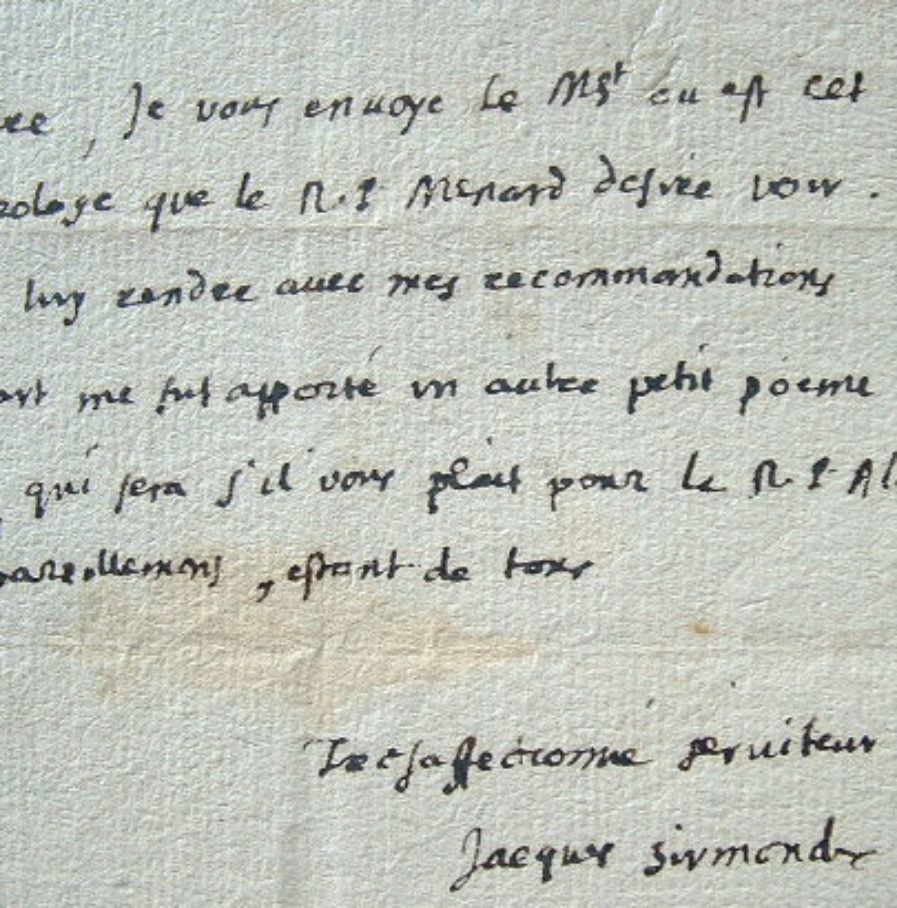 , Je vous enuoye le Mst ou est cet
que le R. P. Menard desire voir.
luy rendre auec mes recommandations
me fut apporté un autre petit poeme
qui sera s'il vous plait pour le R. P. Al
pareillement, estant de tous
Tresaffectionné seruiteur
Jacques Sirmond